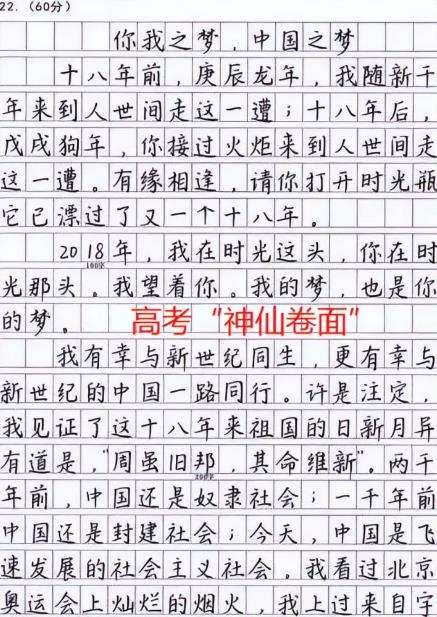 22.（60分）
你我之梦，中国之梦
十八年前，庚辰龙年，我随新千
年来到人世间走这一遭；十八年后，
戊戌狗年，你接过火炬来到人世间走
这一遭。有缘相逢，请你打开时光瓶
它已漂过了又一个十八年。
2018年，我在时光这头，你在时
100字
光那头。我望着你。我的梦，也是你
的梦。
高考“神仙卷面”
我有幸与新世纪同生，更有幸与
新世纪的中国一路同行。许是注定，
我见证了这十八年来祖国的日新月异
有道是，“周虽旧邦，其命维新”。两千
200字
年前，中国还是奴隶社会；一千年前
中国还是封建社会；今天，中国是飞
速发展的社会主义社会。我看过北京
奥运会上灿烂的烟火，我上过来自宇